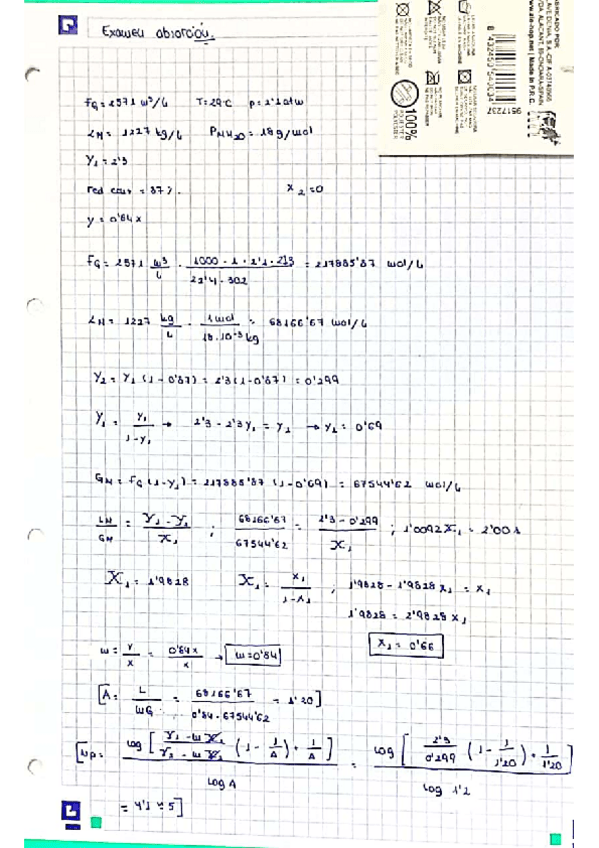 Examen absorción.
FG = 2571 m³/h T = 29°C p = 2'1 atm
LM = 1227 kg/h PMH2O = 18 g/mol
Y1 = 2'3
red cont = 87%. x2 = 0
y = 0'84x
FG = 2571 m³/h · 1000 · 1 · 2'1 · 273 / 22'4 · 302 = 217885'87 mol/h
LM = 1227 kg/h · 1 mol / 18·10⁻³ kg = 68166'67 mol/h
Y2 = Y1 (1 - 0'87) = 2'3 (1 - 0'87) = 0'299
Y1 = y1 / 1 - y1 → 2'3 - 2'3y1 = y1 → y1 = 0'69
GM = FG (1 - y1) = 217885'87 (1 - 0'69) = 67544'62 mol/h
LM / GM = Y1 - Y2 / X1 ; 68166'67 / 67544'62 = 2'3 - 0'299 / X1 ; 1'0092 X1 = 2'001
X1 = 1'9828 X1 = x1 / 1 - x1 ; 1'9828 - 1'9828 x1 = x1
1'9828 = 2'9828 x1
m = y / x = 0'84x / x → m = 0'84 x1 = 0'66
[A = L / mG = 68166'67 / 0'84 · 67544'62 = 1'20]
[Np = log [ Y1 - mX2 / Y2 - mX2 (1 - 1/A) + 1/A ] / log A = log [ 2'3 / 0'299 (1 - 1/1'20) + 1/1'20 ] / log 1'2
= 4'1 ≈ 5]
FABRICADO POR:
www.ale-hop.net | Made in P.R.C.
8 432453 540034
100%